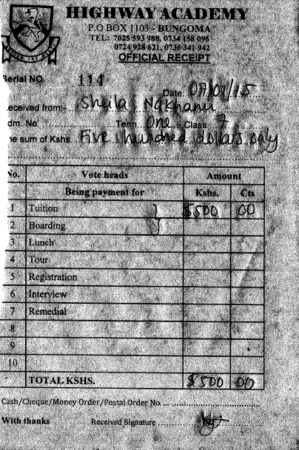 HIGHWAY ACADEMY
P.O BOX 1103 - BUNGOMA
TEL: 7025 593 988, 0734 158 096
0724 928 621, 0736 341 942
OFFICIAL RECEIPT
Serial NO. 114
Date 09/01/15
eceived from:- Sheila Nakhanu
dm. No. Term One Class 7
he sum of Kshs. Five hundred dollars only
No. Vote heads Amount
Being payment for Kshs. Cts
1 Tuition } $500 00
2 Boarding
3 Lunch
4 Tour
5 Registration
6 Interview
7 Remedial
8
9
10
TOTAL KSHS. $500 00
Cash/Cheque/Money Order/Postal Order No.
With thanks Received Signature